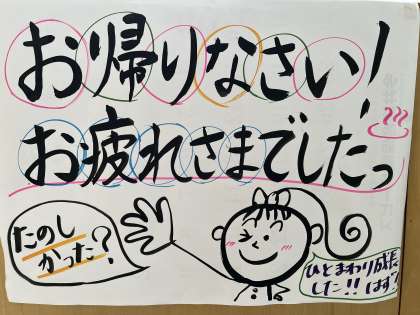 お帰りなさい!
お疲れさまでしたっ
たのし
かった?
ひとまわり成長
した!!はず?